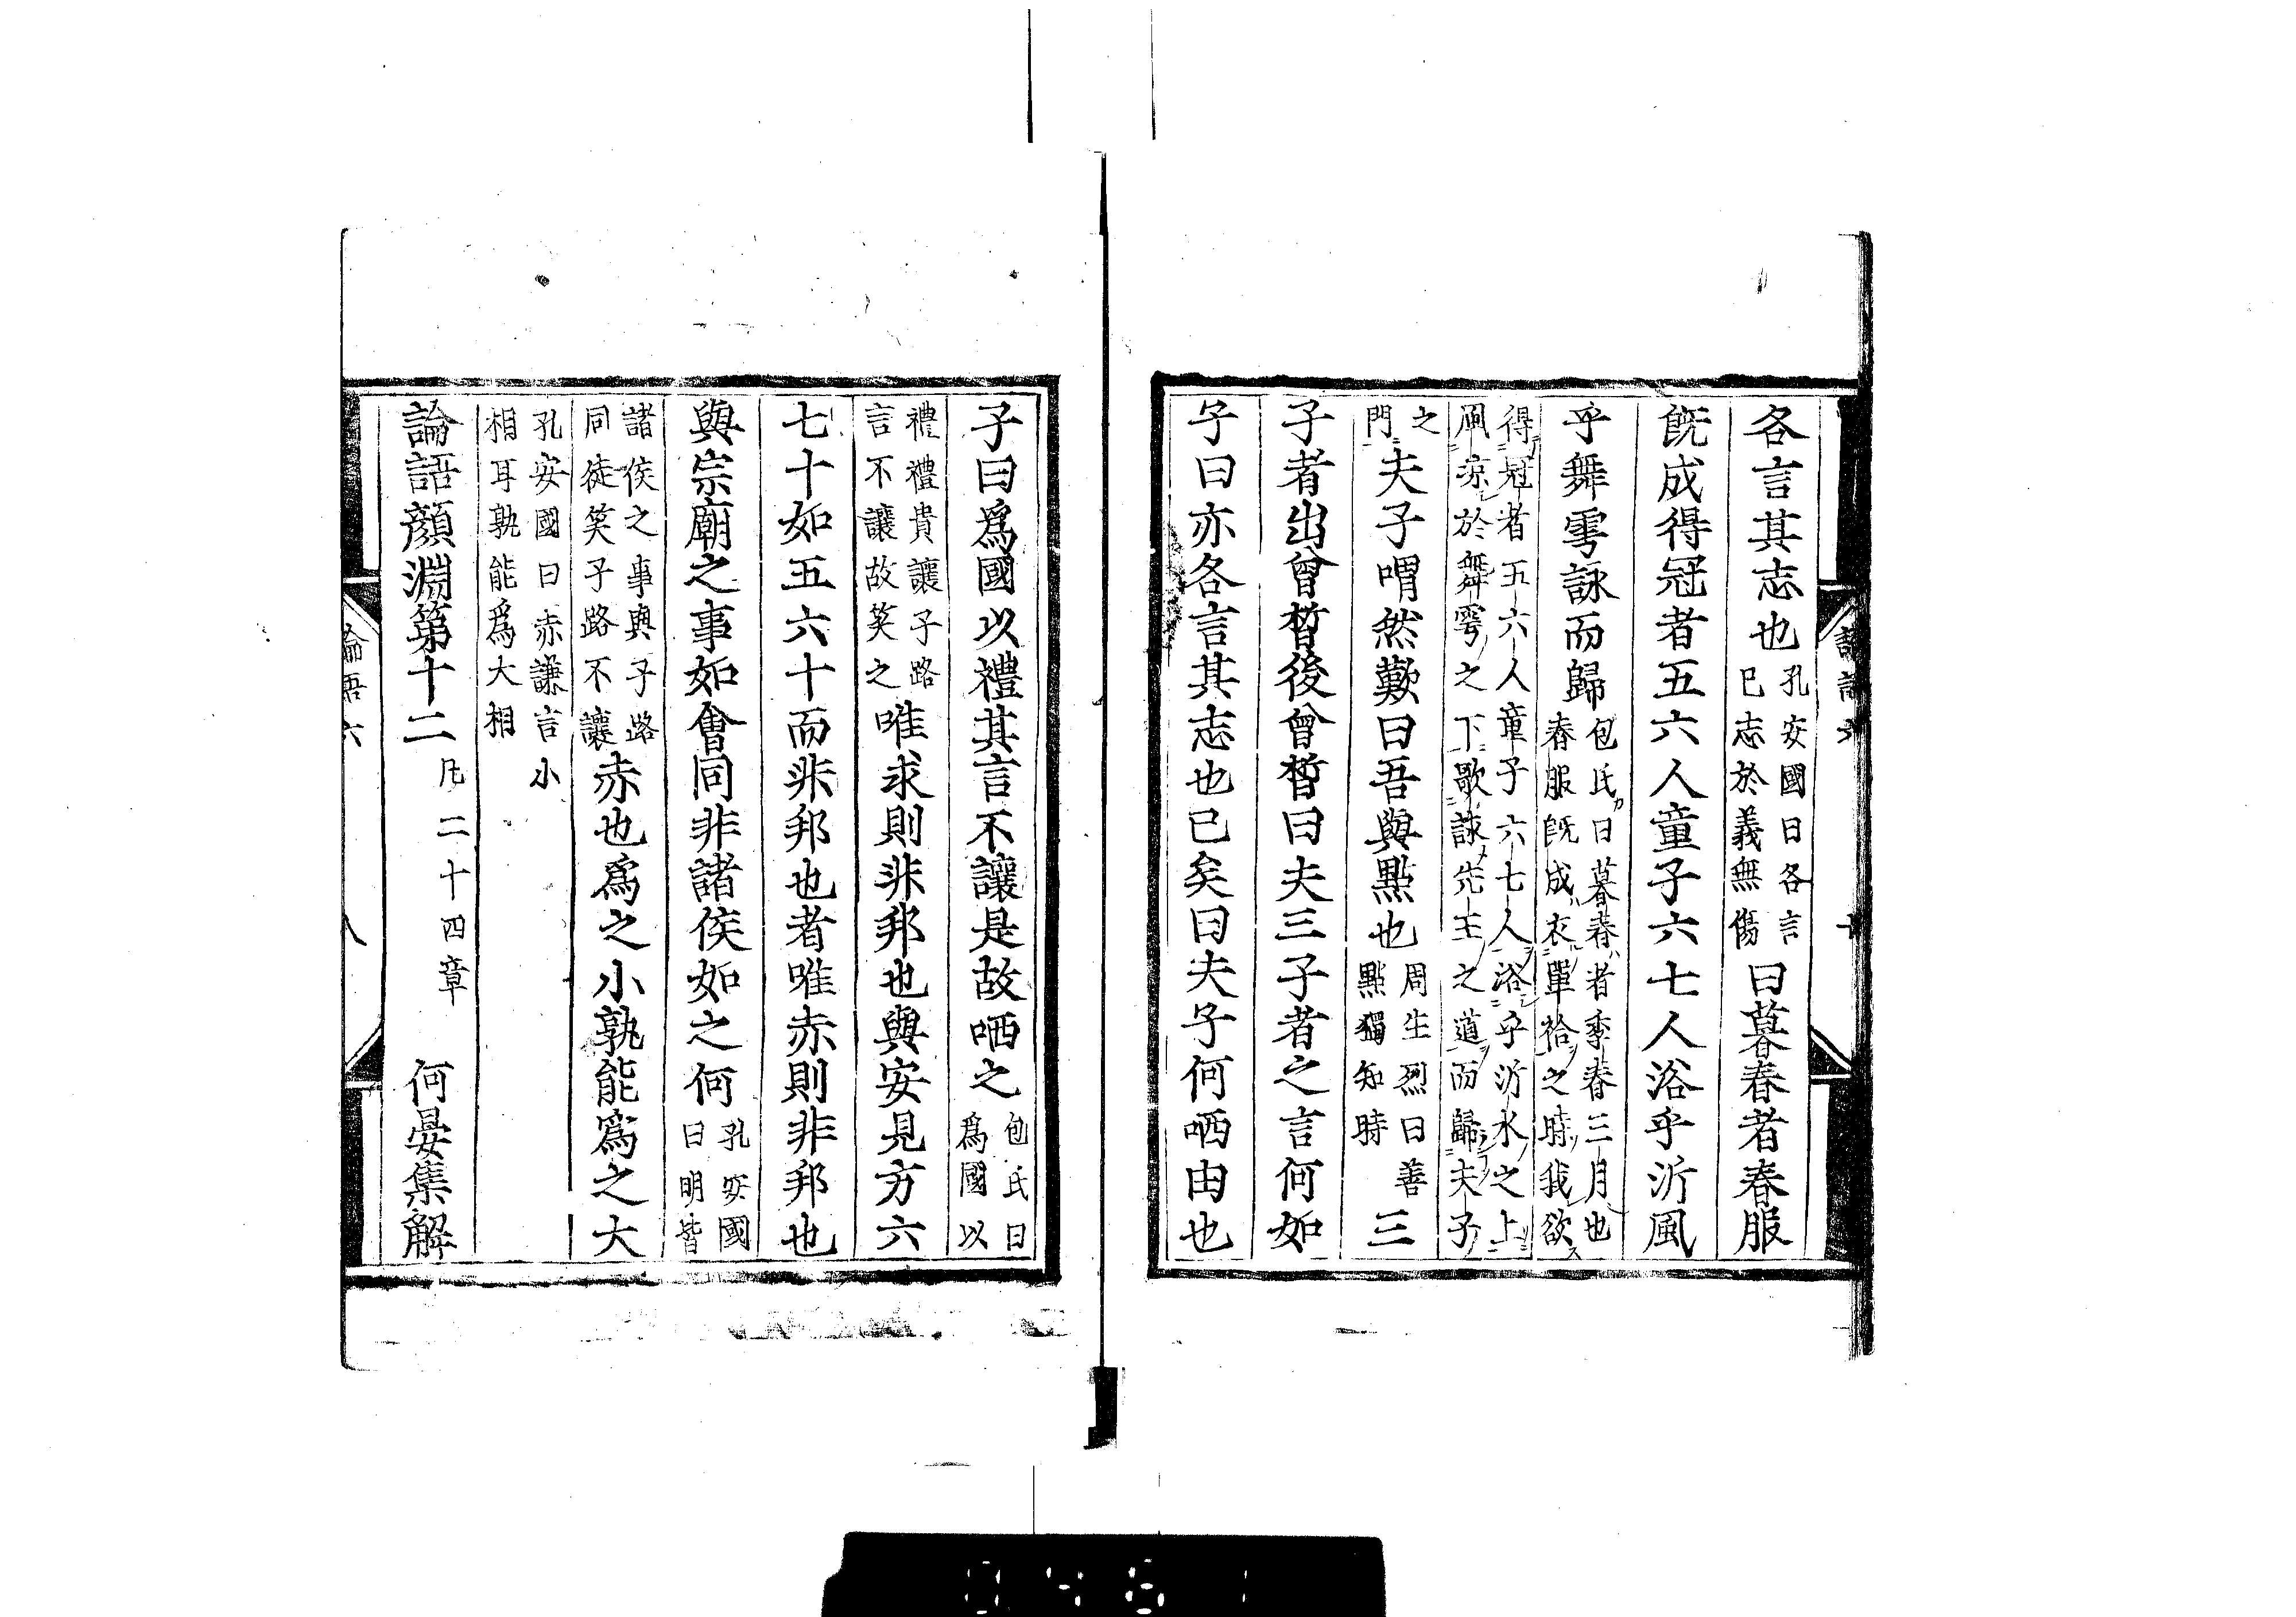 各言其志也孔安國曰各言己志於義無傷曰暮春者春服
既成得冠者五六人童子六七人浴乎沂風
乎舞雩詠而歸包氏曰暮春者季春三月也春服既成衣單袷之時我欲
得冠者五六人童子六七人浴乎沂水之上風凉於舞雩之下歌詠先王之道而歸夫子
之門夫子喟然歎曰吾與點也周生烈曰善點獨知時三
子者出曾晳後曾晳曰夫三子者之言何如
子曰亦各言其志也已矣曰夫子何哂由也
子曰爲國以禮其言不讓是故哂之包氏曰爲國以
禮禮貴讓子路言不讓故笑之唯求則非邦也與安見方六
七十如五六十而非邦也者唯赤則非邦也
與宗廟之事如會同非諸侯如之何孔安國曰明皆
諸侯之事與子路同徒笑子路不讓赤也爲之小孰能爲之大
孔安國曰赤謙言小相耳孰能爲大相
論語顏淵第十二 凡二十四章 何晏集解
論語六 八